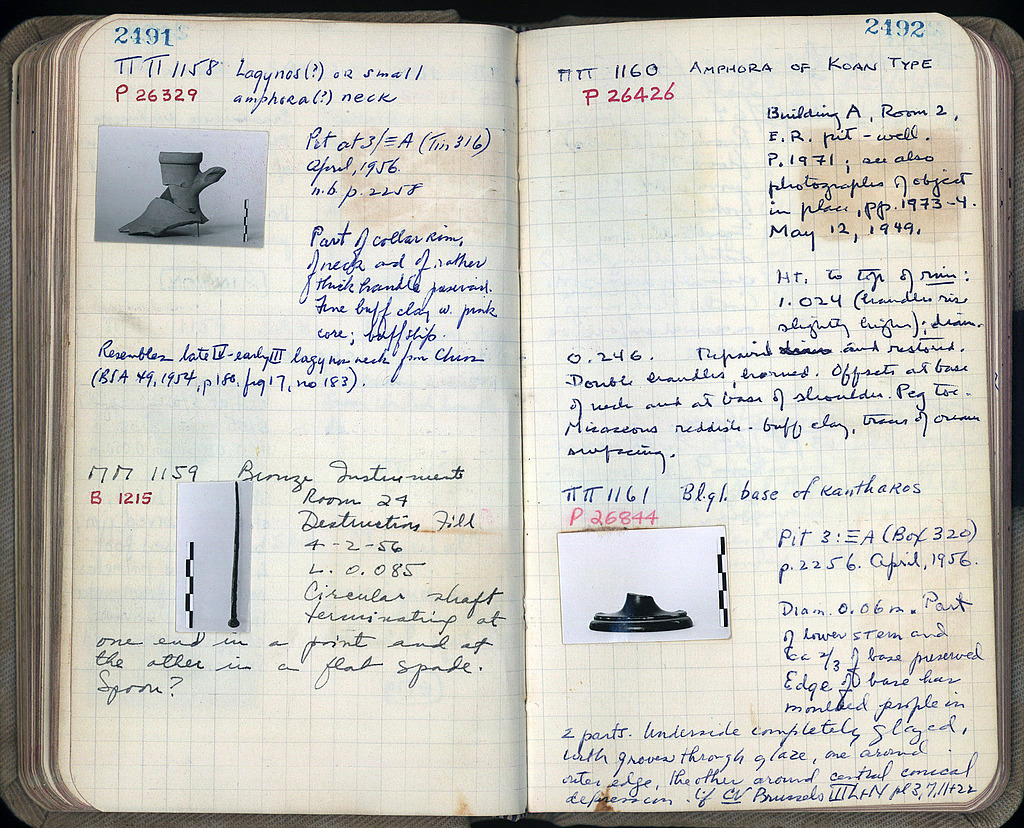 2491
ΠΠ 1158 Lagynos(?) or small
P 26329 amphora(?) neck
Pit at 3/ΞA (Tin 316)
April, 1956.
n.b. p. 2258
Part of collar rim,
of neck and of rather
thick handle preserved.
Fine buff clay w. pink
core; buff slip.
Resembles late IV-early III lagynos neck from Chios
(BSA 49, 1954, p 180, fig 17, no 183).
ΠΠ 1159 Bronze Instruments
B 1215
Room 24
Destruction Fill
4-2-56
L. 0.085
Circular shaft
terminating at
one end in a point and at
the other in a flat spade.
Spoon?
2492
ΠΠ 1160 AMPHORA OF KOAN TYPE
P 26426
Building A, Room 2,
E.R. pit-well.
P. 1971; see also
photographs of object
in place, pp. 1973-4.
May 12, 1949.
Ht. to top of rim:
1.024 (handles rise
slightly higher); diam.
0.246. Repaired and restored.
Double handles, horned. Offsets at base
of neck and at base of shoulder. Peg toe.
Micaceous reddish-buff clay, traces of cream
surfacing.
ΠΠ 1161 Bl.gl. base of kantharos
P 26844
Pit 3:ΞA (Box 320)
p. 2256. April, 1956.
Diam. 0.06 m. Part
of lower stem and
ca 2/3 of base preserved
Edge of base has
moulded profile in
2 parts. Underside completely glazed,
with grooves through glaze, one around
outer edge, the other around central conical
depression. Cf CV Brussels III L+N pl 3, 7, 11+22